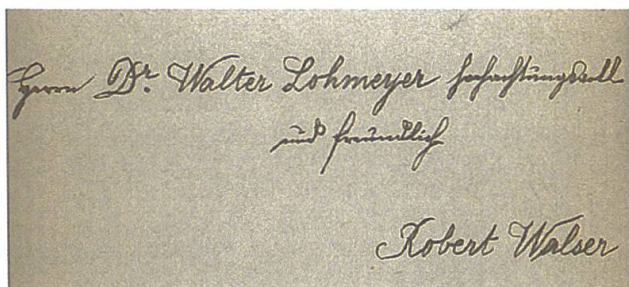 Herrn Dr. Walter Lohmeyer hochachtungsvoll
und freundlich
Robert Walser